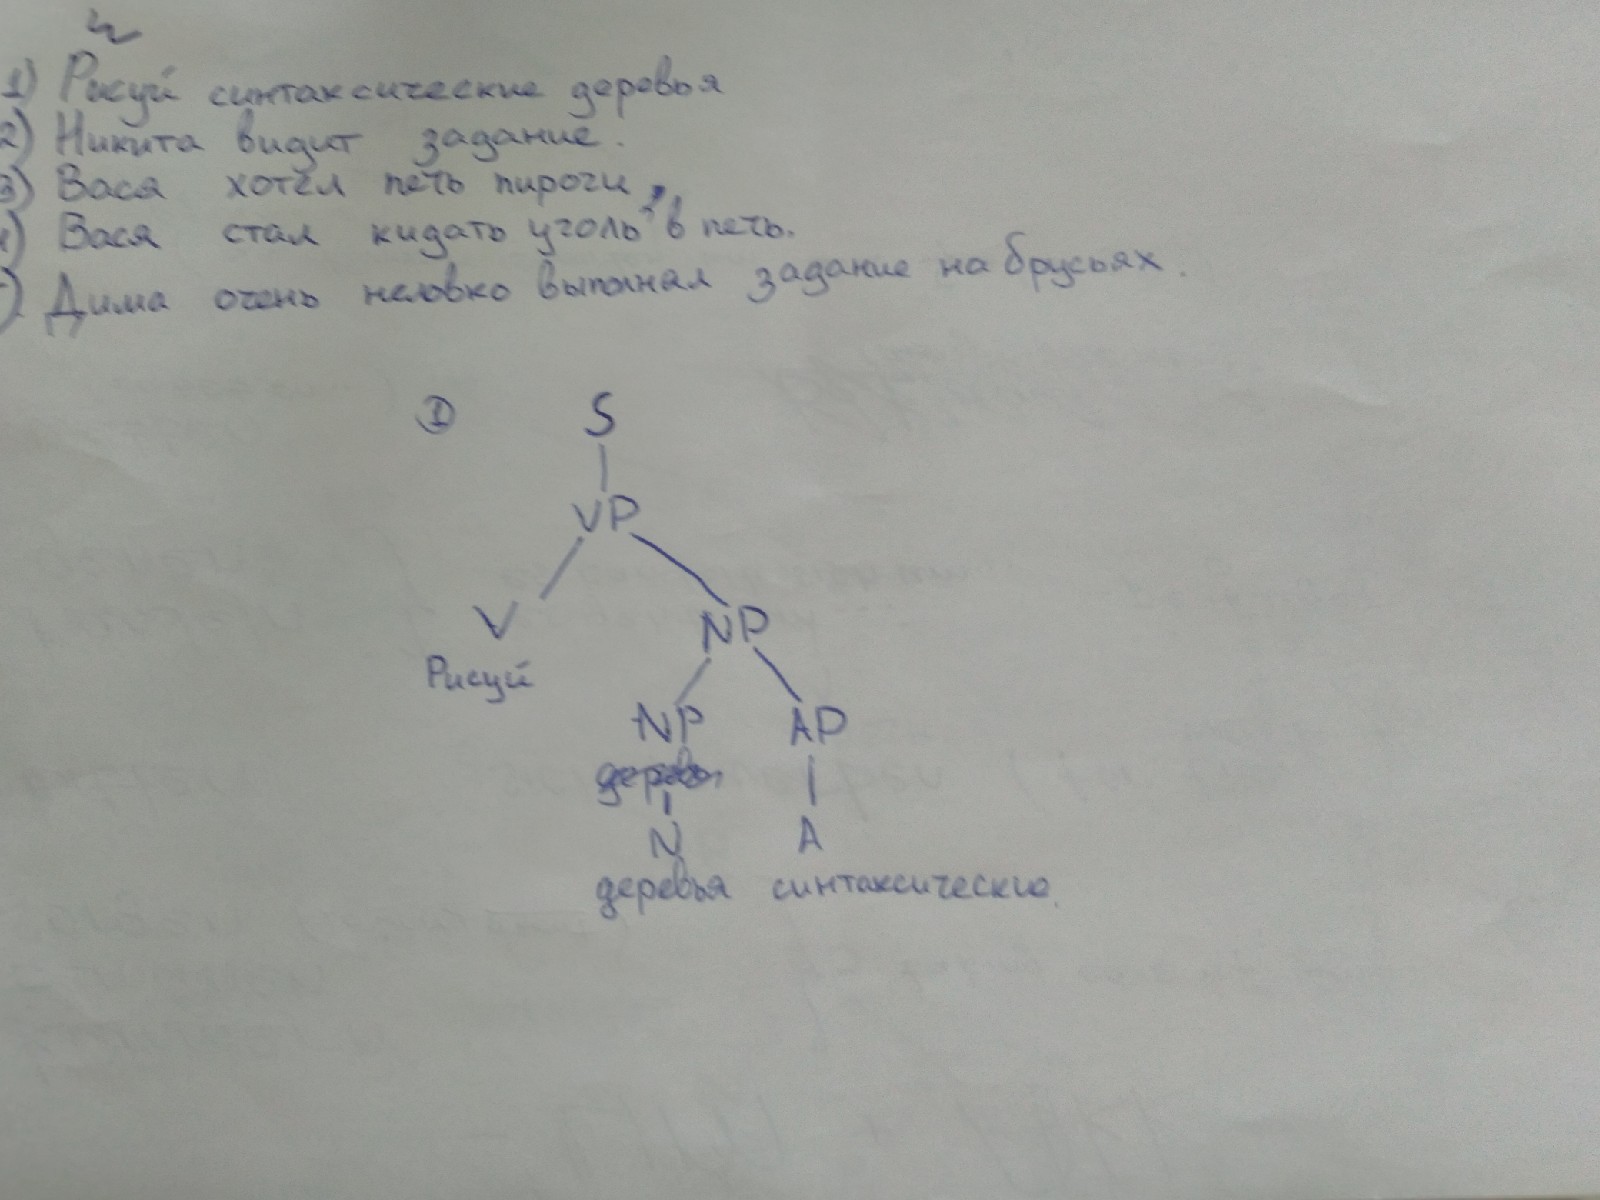 1) Рисуй синтаксические деревья
2) Никита видит задание.
3) Вася хотел печь пироги,
4) Вася стал кидать уголь в печь.
5) Дима очень неловко выполнял задание на брусьях.
① S
VP
V NP
Рисуй
NP AP
N A
деревья синтаксические.